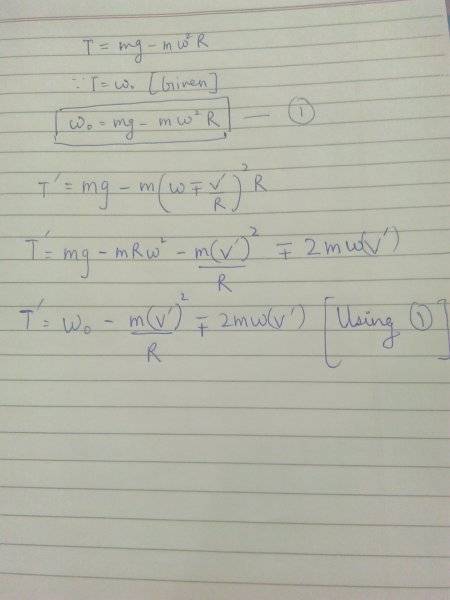 T = mg - mω²R
∵ T = ω₀ [Given]
ω₀ = mg - mω²R — ①
T' = mg - m(ω ∓ v'/R)²R
T' = mg - mRω² - m(v')²/R ∓ 2mω(v')
T' = ω₀ - m(v')²/R ∓ 2mω(v') [Using ①]